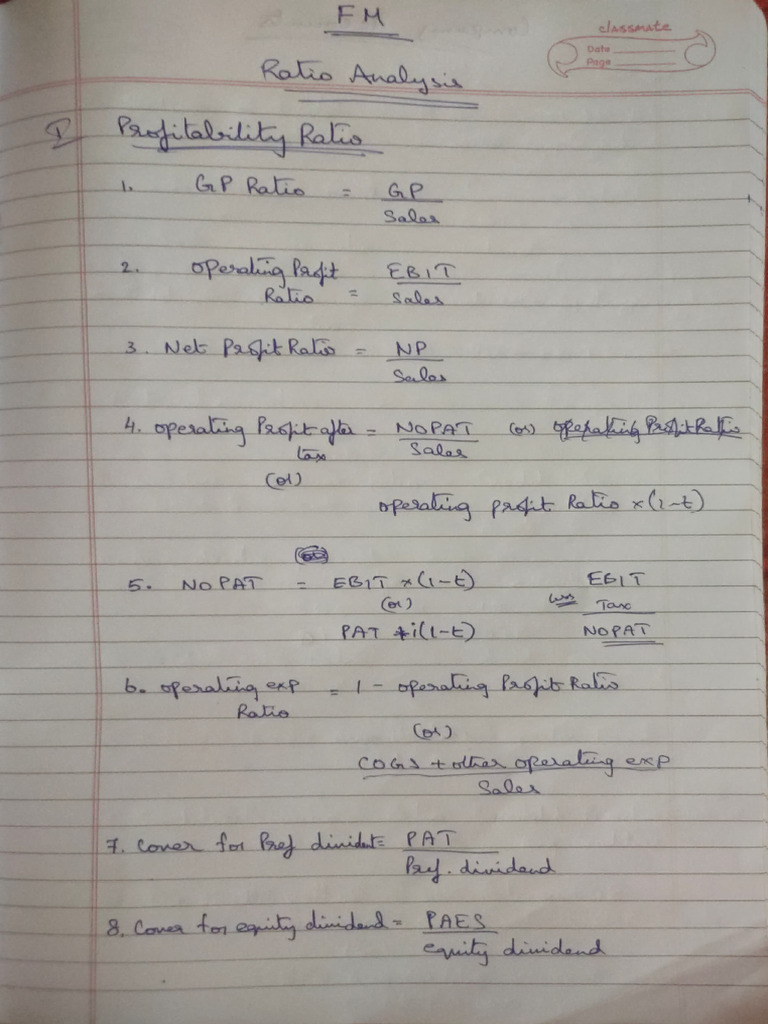 FM
classmate
Date
Page
Ratio Analysis
I Profitability Ratio
1. GP Ratio = GP
Sales
2. Operating Profit EBIT
Ratio = Sales
3. Net Profit Ratio = NP
Sales
4. Operating Profit after = NOPAT (or) operating Profit Ratio
tax Sales
(or)
operating profit Ratio x (1-t)
5. NOPAT = EBIT x (1-t) EBIT
(or) Less Tax
PAT + i(1-t) NOPAT
6. operating exp = 1 - operating Profit Ratio
Ratio
(or)
COGS + other operating exp
Sales
7. Cover for Pref divident = PAT
Pref. dividend
8. Cover for equity dividend = PAES
equity dividend